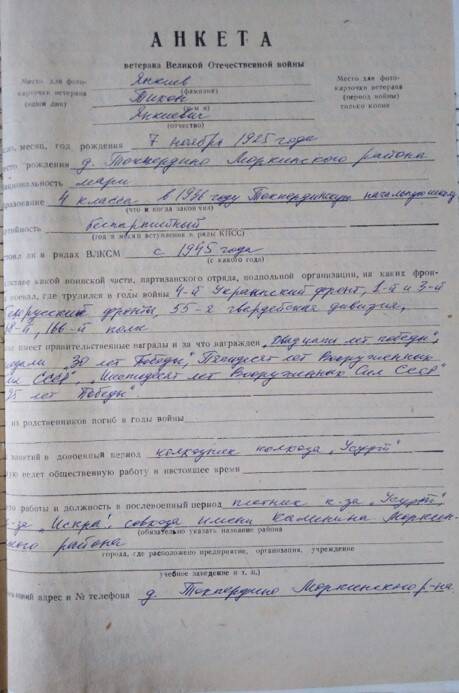 АНКЕТА
ветерана Великой Отечественной войны
Место для фото-
карточки ветерана
(одной дня)
Янкиев
(фамилия)
Тихон
(имя)
Янкиевич
(отчество)
Место для фото-
карточки ветерана
(период войны)
только копия
месяц, год рождения 7 ноября 1925 года
рождения д. Токпердино Моркинского района
циональность мари
разование 4 класса в 1936 году Токпердинскую начальную школу
(что и когда закончил)
тийность беспартийный
(год и месяц вступления в ряды КПСС)
ял ли в рядах ВЛКСМ с 1945 года
(с какого года)
ставе какой воинской части, партизанского отряда, подпольной организации, на каких фрон-
воевал, где трудился в годы войны 4-й Украинский фронт, 1-й и 3-й
орусский фронты, 55-я гвардейская дивизия,
166-й полк
имеет правительственные награды и за что награжден „Двадцать лет победы",
едали „30 лет Победы", „Пятьдесят лет Вооруженных
ил СССР", „Шестьдесят лет Вооруженных Сил СССР"
Победы"
из родственников погиб в годы войны
занятий в довоенный период колхозник колхоза „Усурт"
ую ведет общественную работу в настоящее время
то работы и должность в послевоенный период плотник к-за „Усурт",
к-за „Искра", совхоза имени Калинина Моркин-
(обязательно указать название района
ского района
города, где расположено предприятие, организация, учреждение
учебное заведение и т. п.)
адрес и № телефона д. Токпердино Моркинского р-на